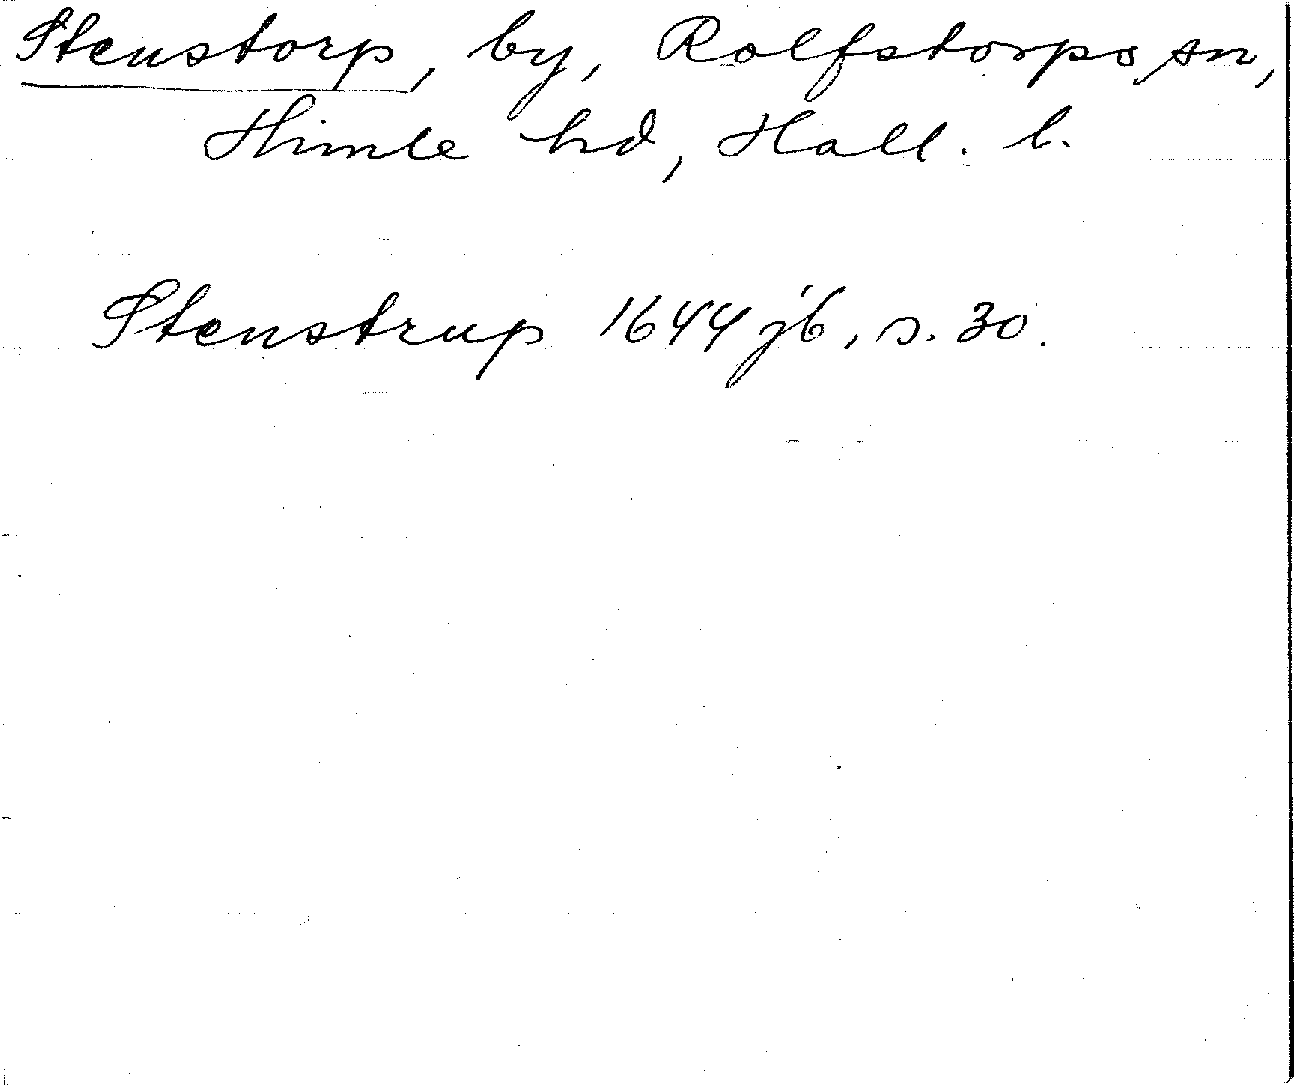 Stenstorp, by, Rolfstorps sn,
Himle hd, Hall. l.
Stenstrup 1644 jb, s. 30.